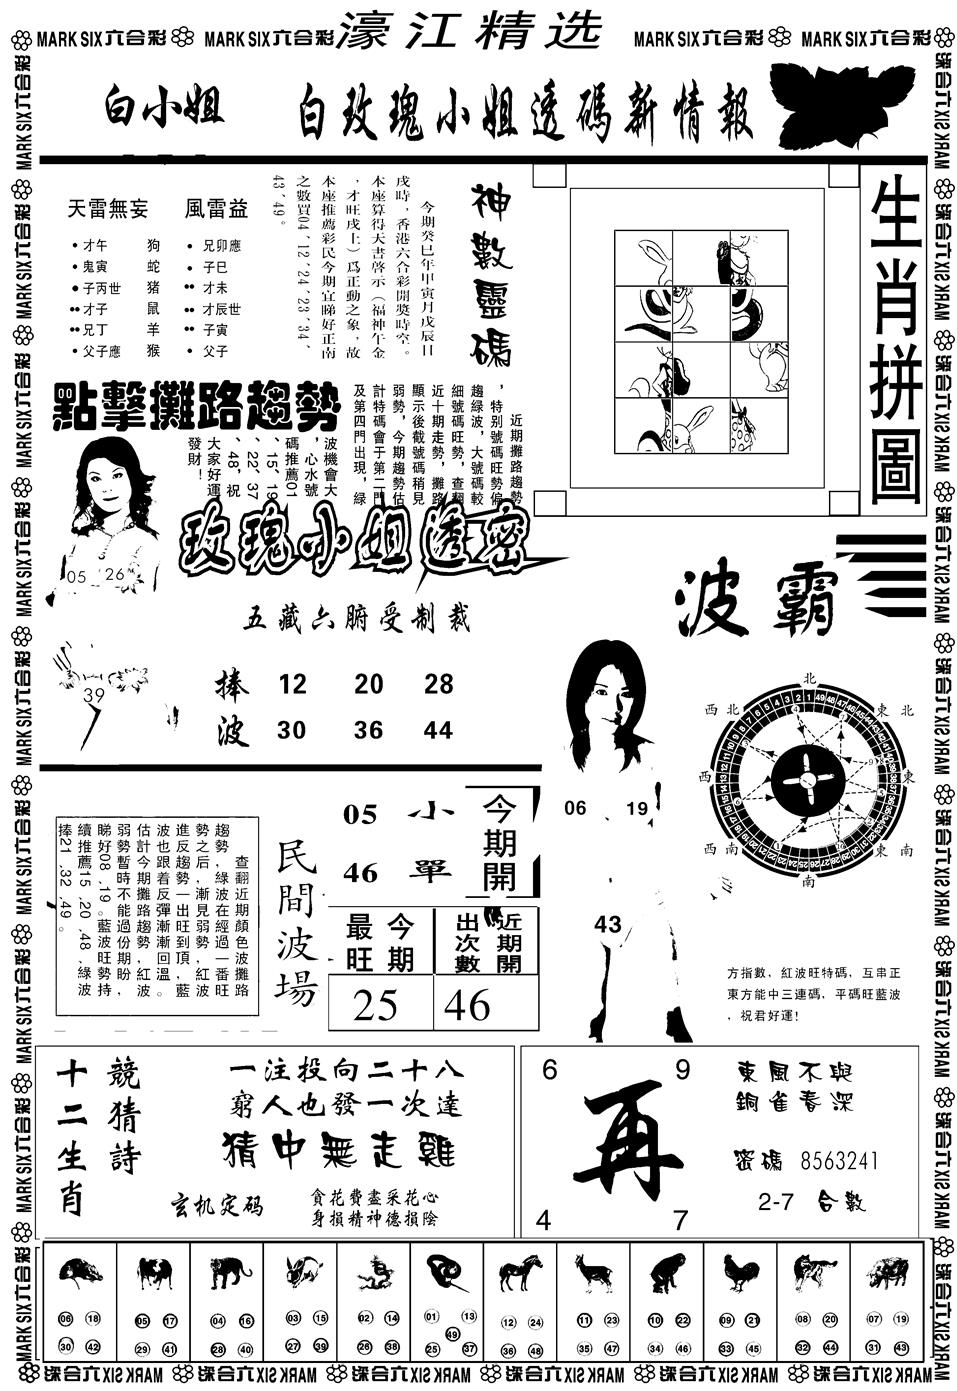 濠江精选
MARK SIX六合彩
MARK SIX六合彩
MARK SIX六合彩
MARK SIX六合彩
白小姐
白玫瑰小姐透碼新情報
天雷無妄
風雷益
•才午 狗
•鬼寅 蛇
•子丙世 豬
••才子 鼠
••兄丁 羊
•父子應 猴
•兄卯應
•子巳
••才未
••才辰世
••子寅
•父子
神數靈碼
今期癸巳年甲寅月戊辰日
戌時，香港六合彩開獎時空。
本座算得天書啓示（福神午金
，才旺戌土）爲正動之象，故
本座推薦彩民今期宜睇好正南
之數買04、12、24、23、34、
43、49。
生肖拼圖
點擊攤路趨勢
近期攤路趨勢
，特別號碼旺勢偏
趨綠波，大號碼較
細號碼旺勢，查翻
近十期走勢，攤路
顯示後截號碼稍見
弱勢，今期趨勢估
計特碼會于第二門
及第四門出現，綠
波機會大
，心水號
碼推薦01
、15、19
、22、37
、48、祝
大家好運
發財！
玫瑰小姐透密
05 26
39
五藏六腑受制裁
捧 12 20 28
波 30 36 44
波霸
北
西北
東北
西
東
西南
東南
南
06 19
43
方指數，紅波旺特碼，互串正
東方能中三連碼，平碼旺藍波
，祝君好運！
查翻近期顏色波攤路
趨勢，綠波在經過一番旺
勢之后，漸見弱勢，紅波
進反趨勢一出旺到頂，藍
波也跟着反彈漸漸回溫。
估計今期攤路趨勢，紅波
弱勢暫時不能過份期盼，
睇好08、19。藍波旺勢持
續推薦15、20、48，綠波
捧21、32、49。
民間波場
05 小
46 單
今期開
今期最旺
近期開出次數
25
46
競猜詩
十二生肖
一注投向二十八
窮人也發一次達
猜中無走雞
玄机定码
貪花費盡采花心
身損精神德損陰
6 9
再
4 7
東風不與
銅雀春深
密碼 8563241
2-7 合數
06 18 30 42
05 17 29 41
04 16 28 40
03 15 27 39
02 14 26 38
01 13 49 25 37
12 24 36 48
11 23 35 47
10 22 34 46
09 21 33 45
08 20 32 44
07 19 31 43